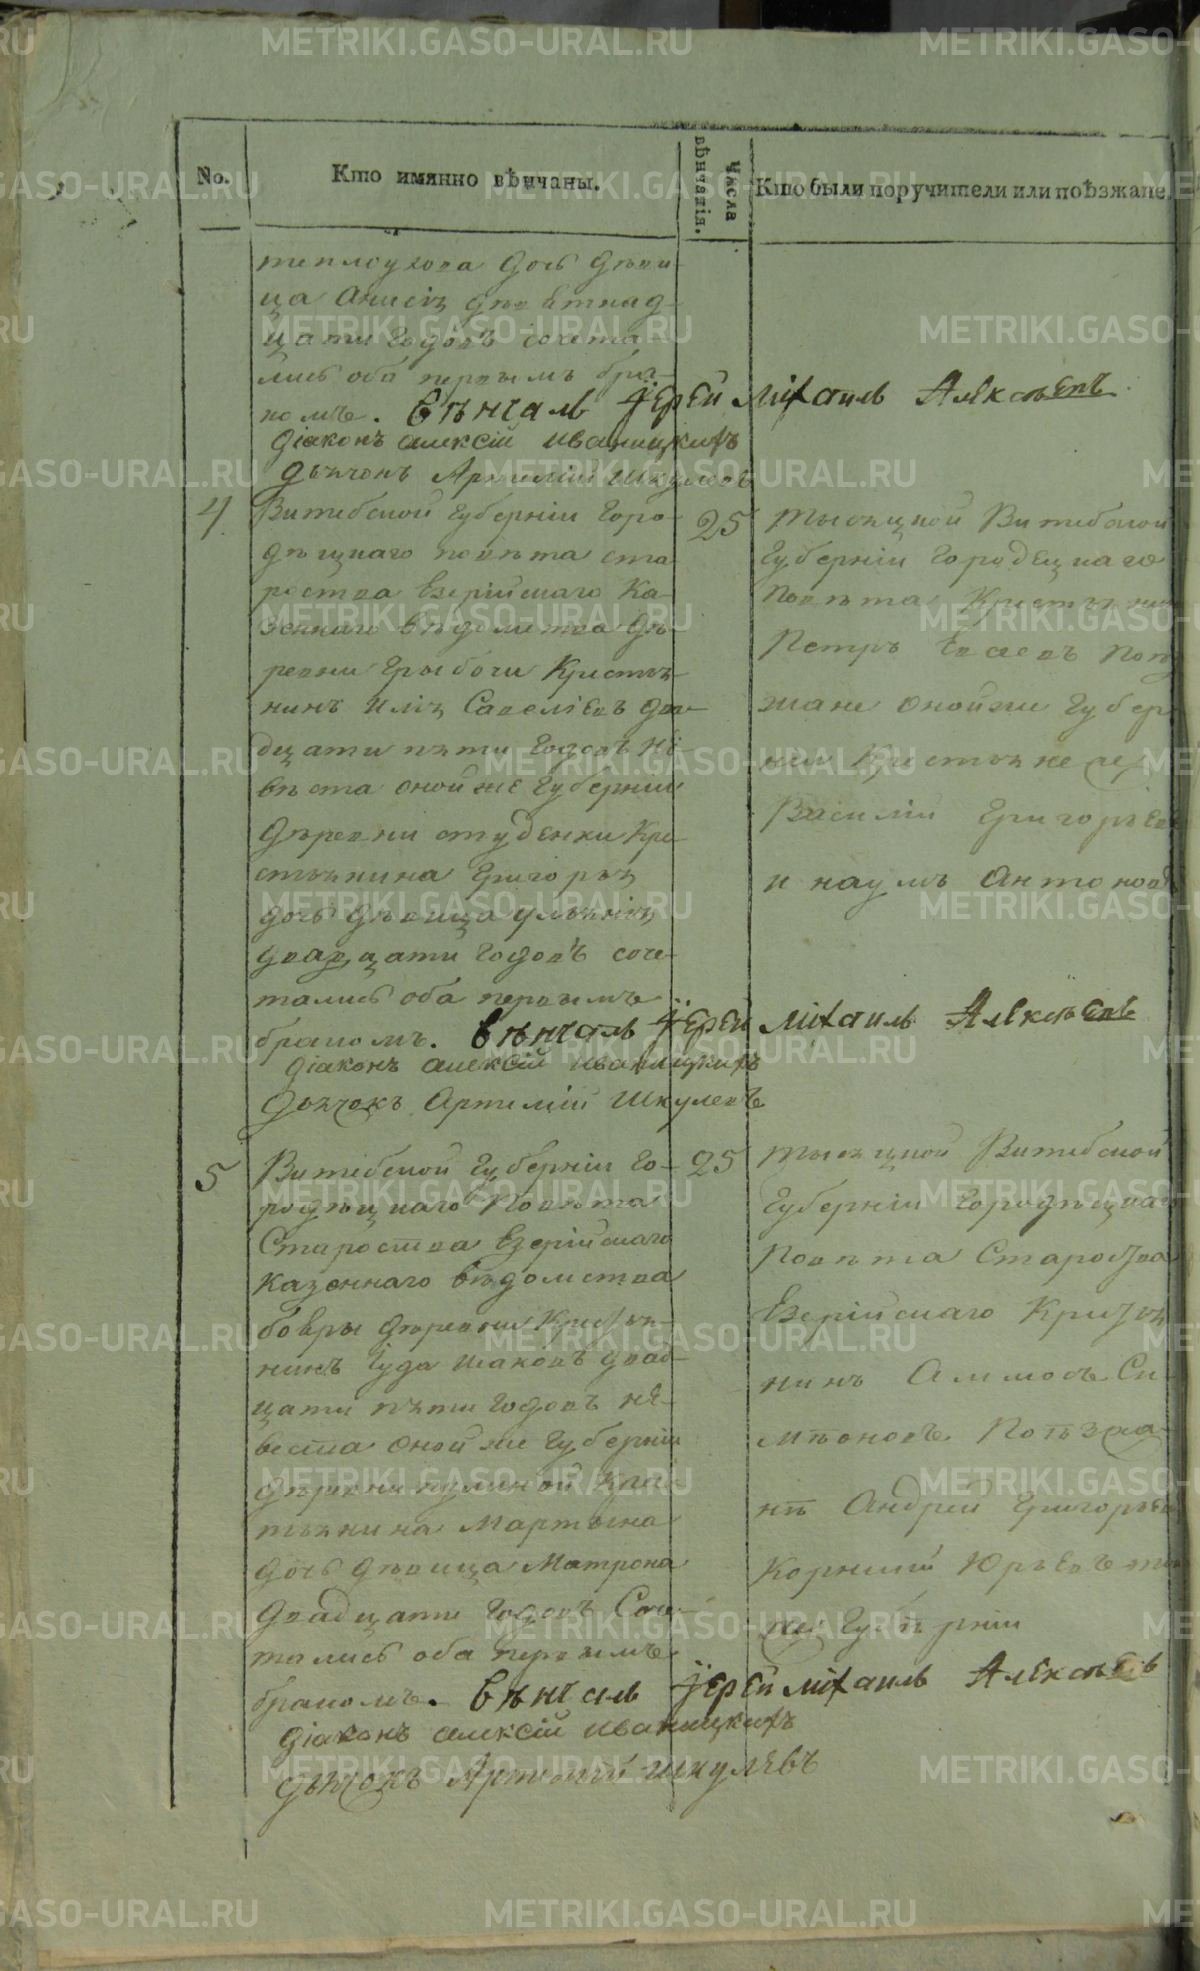 No.
Кто имянно вѣнчаны.
Числа вѣнчанія.
Кто были поручители или поѣзжане.
теплоухова дочь дѣви-
ца Анисія девятнад-
цати годовъ сочета-
лись оба первымъ бра-
комъ. вѣнчалъ Їерей Михаилъ Алексѣевъ
діаконъ алексій иваницкихъ
дьячокъ Артемій Шкулевъ
4
Витебской губерніи Горо-
дѣцкаго повѣта ста
роства Езерійскаго Ка-
зеннаго вѣдомства дѣ-
ревни Крестья-
нинъ Илія Савеліевъ два-
дцати пяти годовъ не-
вѣста оной же губерніи
дѣревни студенки Кре
стьянина Григорья
дочь дѣвица ульянія
двадцати годовъ соче-
тались оба первымъ
бракомъ. вѣнчалъ Їерей Михаилъ Алексѣевъ
діаконъ алексій иваницкихъ
дьячокъ Артемій Шкулевъ
25
тысяцкой Витебской
губерніи городецкаго
повѣта Крестьянин
Петръ Евсеевъ поѣз
жане оной же губер
ніи Крестьяне
Василій Григорьев
и наумъ Антонов
5
Витебской губерніи го-
родѣцкаго повѣта
Староства Езерійскаго
казеннаго вѣдомства
бобры дѣревни Крестья-
нинъ Іуда двад-
цати пяти годовъ не-
веста оной же губерніи
дѣревни Кре
стьянина Мартына
дочь дѣвица Матрона
двадцати годовъ Соче-
тались оба первымъ
бракомъ. вѣнчалъ Їерей Михаилъ Алексѣевъ
діаконъ алексій иваницкихъ
дьячокъ Артемій Шкулевъ
25
тысяцкой Витебской
губерніи городѣцкаг
повѣта Староства
Езерійскаго Крестья
нинъ Аммосъ Си-
мѣоновъ Поѣзжа
нѣ Андрей Григорьев
Корнилий Юрьевъ
губѣрніи
METRIKI.GASO-URAL.RU